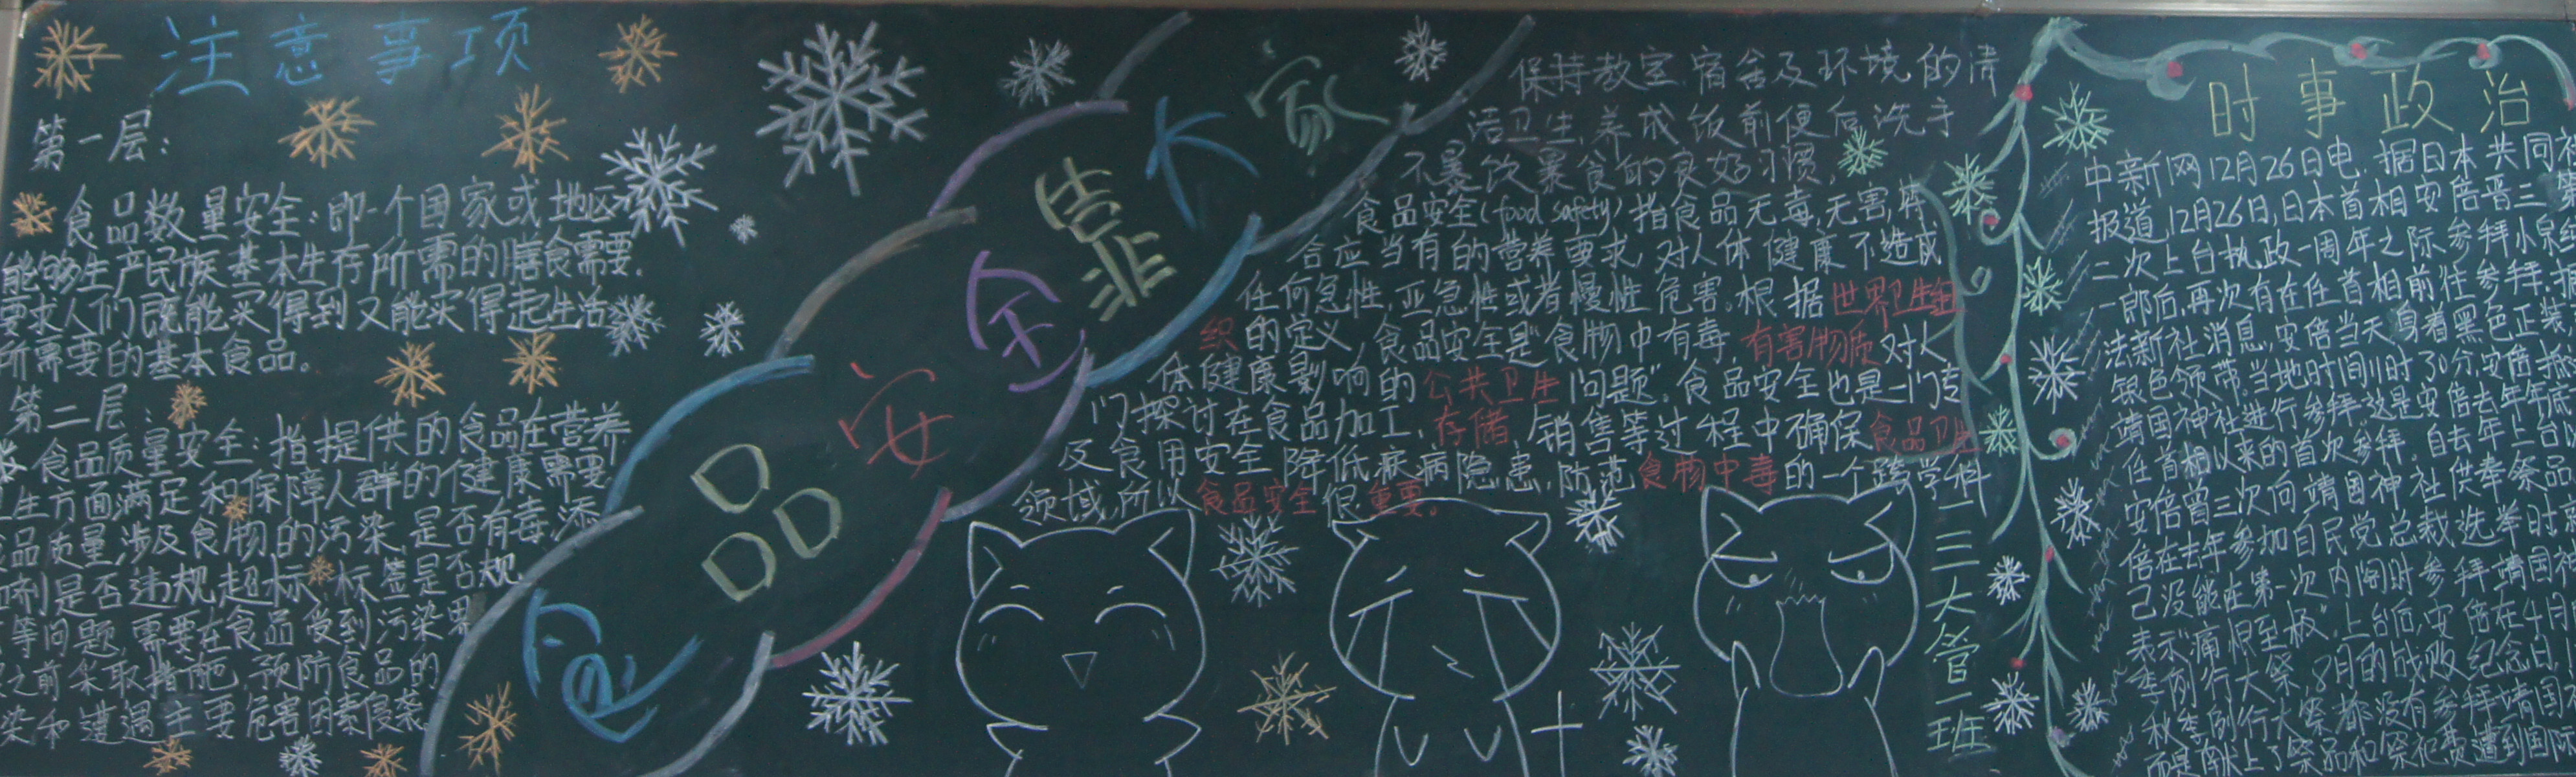 注意事项
第一层:
食品数量安全:即一个国家或地区
能够生产民族基本生存所需的膳食需要.
要求人们既能买得到又能买得起生活
所需要的基本食品。
第二层:
食品质量安全:指提供的食品在营养
生方面满足和保障人群的健康需要
品质量涉及食物的污染,是否有毒,添
剂是否违规超标,标签是否规
等问题,需要在食品受到污染界
之前采取措施,预防食品的
染和遭遇主要危害因素侵袭
食品安全靠大家
保持教室宿舍及环境的清
洁卫生,养成饭前便后洗手
不暴饮暴食的良好习惯,
食品安全(food safety)指食品无毒,无害,符
合应当有的营养要求,对人体健康不造成
任何急性,亚急性或者慢性危害。根据世界卫生组
织的定义,食品安全是“食物中有毒,有害物质对人
体健康影响的公共卫生问题”.食品安全也是一门专
门探讨在食品加工,存储,销售等过程中确保食品卫生
及食用安全,降低疾病隐患,防范食物中毒的一个跨学科
领域,所以食品安全很重要。
一三大管一班
时事政治
中新网12月26日电,据日本共同社
报道,12月26日,日本首相安倍晋三
二次上台执政一周年之际参拜
一郎后,再次有在任首相前往参拜.据
法新社消息,安倍当天身着黑色正装
银色领带,当地时间11时30分,安倍抵
靖国神社进行参拜.这是安倍去年年底
任首相以来的首次参拜.自去年上台以
安倍曾三次向靖国神社供奉祭品
倍在去年参加自民党总裁选举时
己没能在第一次内阁时参拜靖国神
表示“痛恨至极”.上台后,安倍在4月
季例行大祭,8月的战败纪念日,
秋季例行大祭都没有参拜靖国
而是献上了祭品和祭祀费遭到国际